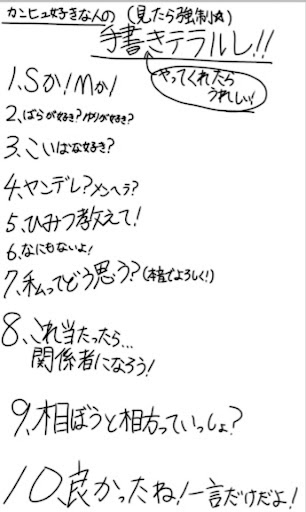 カンヒュ好きな人の(見たら強制☆)
手書きテラルレ!!
やってくれたら
うれしい!
1、Sか!Mか!
2、ばらが好き?ゆりが好き?
3、こいばな好き?
4、ヤンデレ?メンヘラ?
5、ひみつ教えて!
6、なにもないよ!
7、私ってどう思う?(本音でよろしく!)
8、これ当たったら…
関係者になろう!
9、相ぼうと相方っていっしょ?
10、良かったね!一言だけだよ!